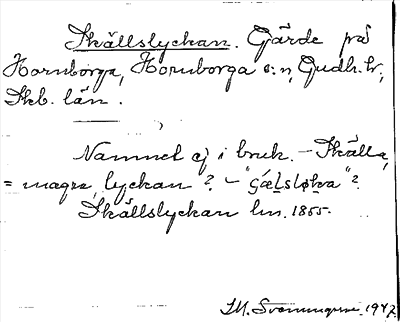 Skällslyckan. Gärde på
Hornborga, Hornborga s:n, Gudh. hr,
Skb. län.
Namnet ej i bruk. – Skälla,
= magra lyckan? –
Skällslyckan lm. 1855.
1947.